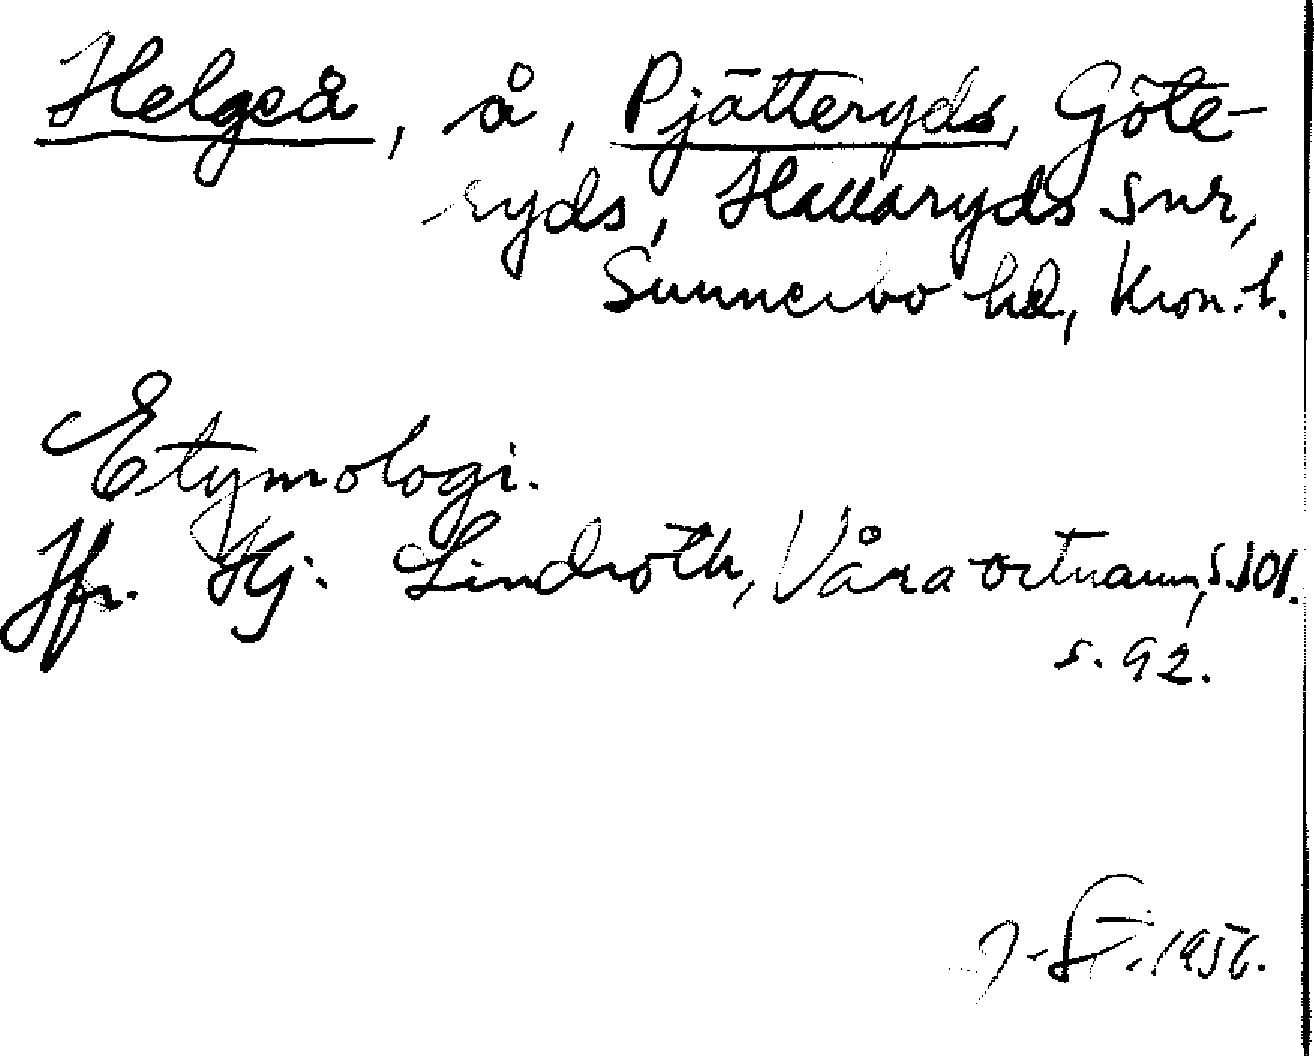 Helgeå, å, Pjätteryds, Göte-
ryds, Hallaryds snr,
Sunnerbo hd, Kron. l.
Etymologi.
Jfr. Hj. Lindroth, Våra ortnamn, s. 101.
s. 92.
1956.